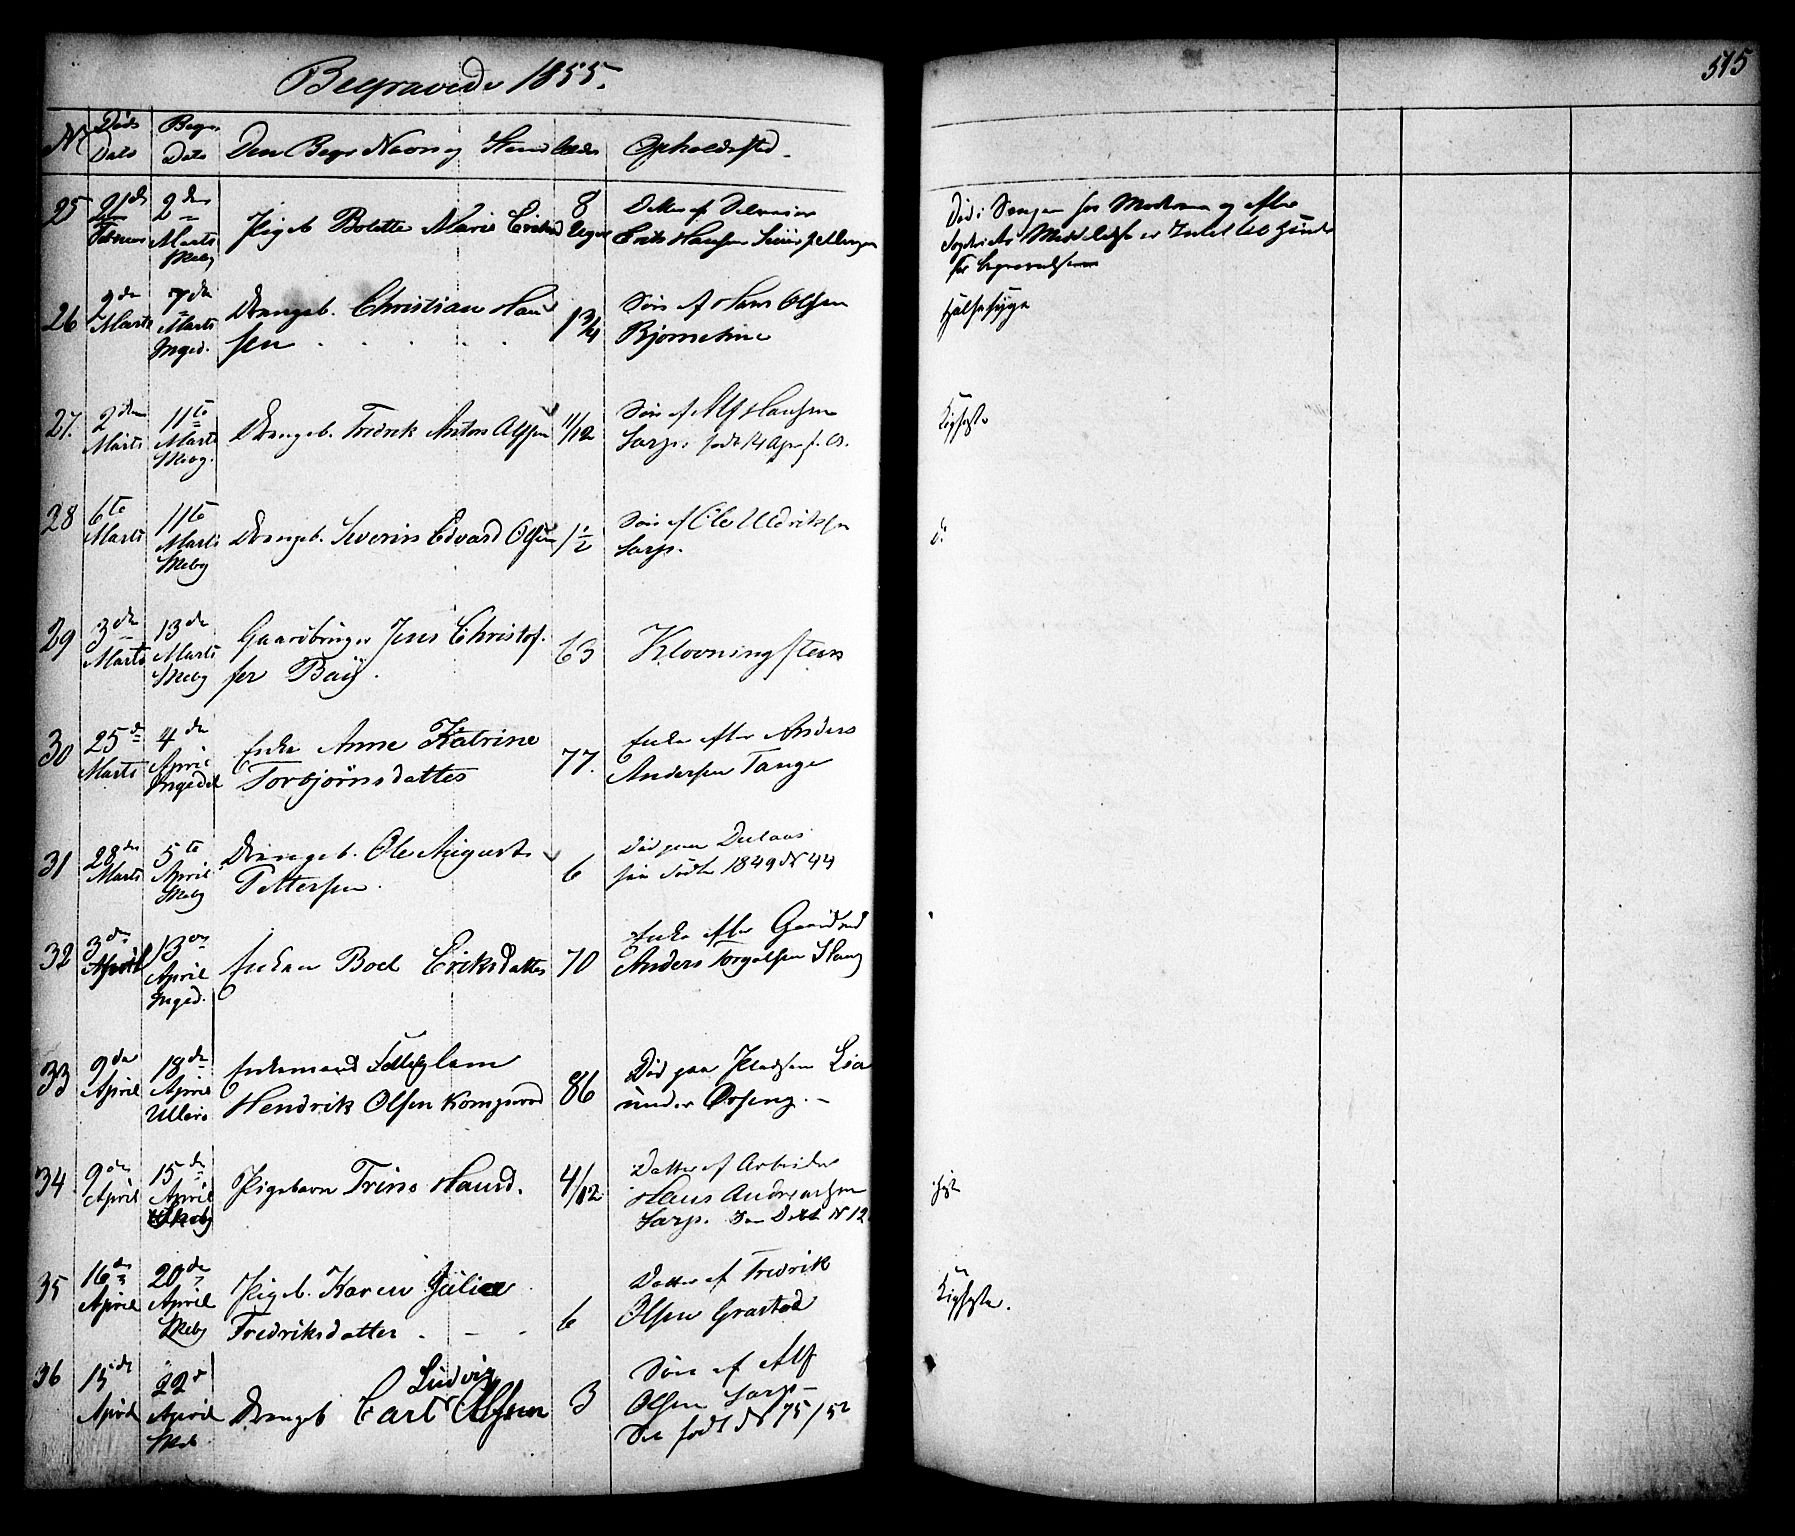 515
Begravede 1855.
Nr Døds Dato Begr. Dato Den Begr Navn og Stand Alder Opholdssted.
25 21de Februar 2den Marts Skeby Pigeb Bolette Marie 8 Uger Datter af
Erik Hansen
Død i Sengen hos Moderen og efter
er Intet til Hinder
for Begravelsen
26 2den Marts 7de Marts Inged. Drengeb. Christian Han
sen 1 3/4 Søn af Hans Olsen
Bjørnetine
Halsesyge
27. 2den Marts 11te Marts Drengeb. Fredrik Anton Alfsen 11/12 Søn af Alf Hansen
Sarps. født 14 Apr f. A.
28 6te Marts 11te Marts Skeby Drengeb. Severin Edvard Olsen 1 1/2 Søn af Ole Uldriksen
Sarps.
d:
29 3de Marts 13de Marts Skeby Gaardbruger Jens Christof
fer Baÿ. 63 Kloovningsteen
30 25de Marts 4de April Ingedal Enke Anne Katrine
Torbjørnsdatter 77. Enke efter Anders
Andersen Tange
31 28de Marts 5te April Skeby Drengeb. Ole August
Pettersen. 6 Død paa
født 1849 Nr 44
32 3de April 13de April Inged. Enken Boel Eriksdatter 70 Enke efter
Anders Torgalsen
33 9de April 18de April Ullerø Enkemand
Hendrik Olsen 86 Død paa Pladsen Lia
under
34 9de April 15de April Skeby Pigebarn Trine Hansd. 4/12 Datter af Arbeider
Hans Andreassen
Sarps. See Døbt Nr 12
35 16de April 20de April Skeby Pigeb. Karen Juliæ
Fredriksdatter 6 Datter af Fredrik
Olsen Grastad
36 15de April 22de April Skeb Drengeb Carl Ludvig Alfsen 3 Søn af Alf
Olsen Sarps
See født Nr 75/52